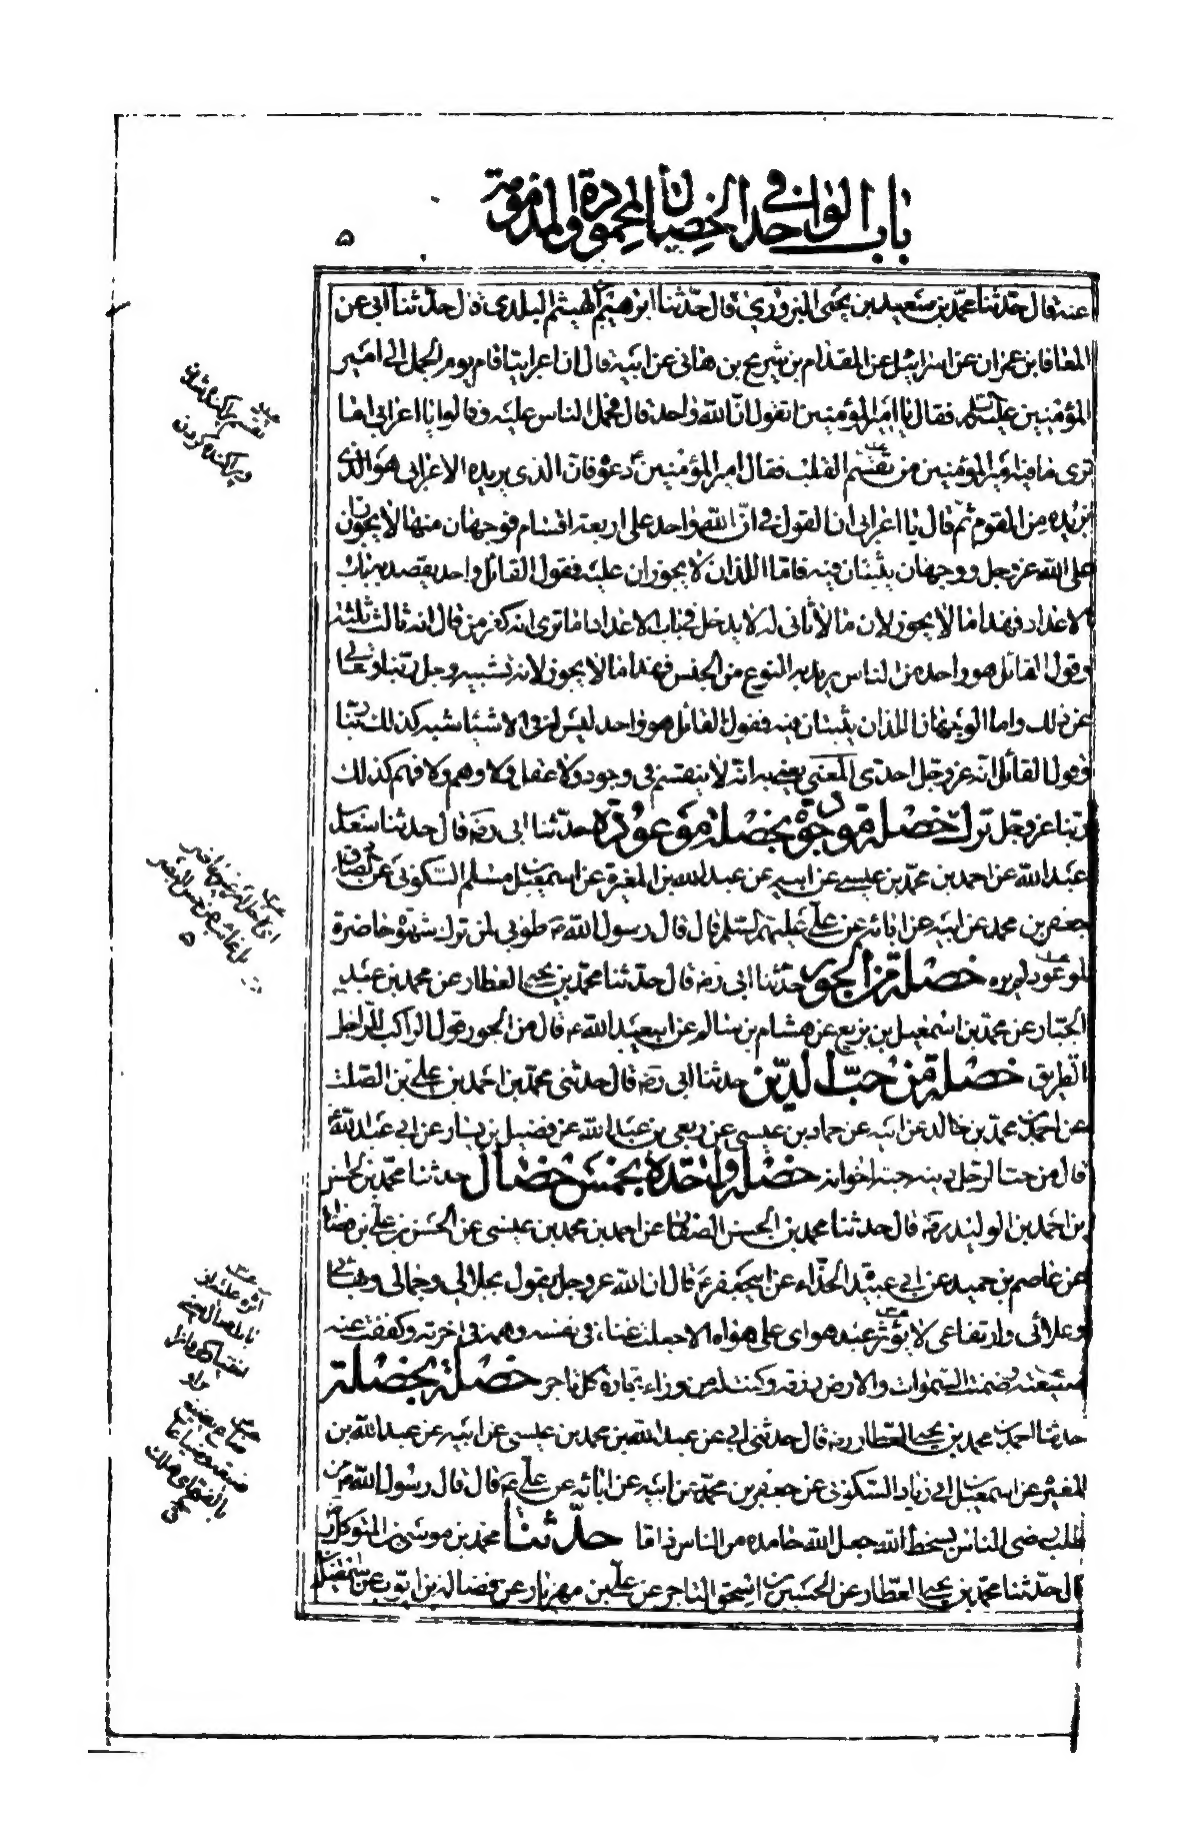 باب الواحد في الخصال المحمودة والمذمومة
۵
عنه قال حدثنا محمد بن سعيد بن يحيى البزوري قال حدثنا ابرهيم الهيثم البلدى قال حدثنا ابى عن
المعافا بن عمران عن اسرائيل عن المقدام بن شريح بن هانى عن ابيه قال ان اعرابيا قام يوم الجمل الى امير
المؤمنين عليه السلم فقال يا امير المؤمنين اتقول انّ الله واحد قال فحمل الناس عليه وقالوا يا اعرابى اما
ترى ما فيه امير المؤمنين من تقسّم القلب فقال امير المؤمنين ع دعوه فان الذى يريده الاعرابى هو الذى
نريده من القوم ثمّ قال يا اعرابى ان القول في انّ الله واحد على اربعة اقسام فوجهان منها لا يجوزان
على الله عز وجل ووجهان يثبتان فيه فاما اللذان لا يجوزان عليه فقول القائل واحد يقصد به باب
الاعداد فهذا ما لا يجوز لان ما لا ثانى له لا يدخل في باب الاعداد اما ترى انه كفر من قال انه ثالث ثلثة
وقول القائل هو واحد من الناس يريد به النوع من الجنس فهذا ما لا يجوز لانه تشبيه وجل ربنا وتعالى
عن ذلك واما الوجهان اللذان يثبتان فيه فقول القائل هو واحد ليس له في الاشياء شبه كذلك ربّنا
وقول القائل انه عز وجل احدى المعنى يعنى به انه لا ينقسم في وجود ولا عقل ولا وهم ولا فهم كذلك
ربنا عز وجل ترك خصلة موجودة بخصلة موعودة حدثنا ابى رضه قال حدثنا سعد بن
عبد الله عن احمد بن محمد بن عيسى عن ابيه عن عبد الله بن المغيرة عن اسمعيل بن مسلم السكونى عن الصادق
جعفر بن محمد عن ابيه عن ابائه عن على عليهم السلم قال قال رسول الله ص طوبى لمن ترك شهوة حاضرة
لموعود لم يره خصلة من الجور حدثنا ابى رضه قال حدثنا محمد بن يحيى العطار عن محمد بن عبد
الجبار عن محمد بن اسمعيل بن بزيع عن هشام بن سالم عن ابى عبد الله ع قال من الجور قول الراكب للراجل
الطريق خصلة من حبّ الدّين حدثنا ابى رضه قال حدثنى محمد بن احمد بن على بن الصلت
عن احمد بن محمد بن خالد عن ابيه عن حماد بن عيسى عن ربعى بن عبد الله عن فضيل بن يسار عن ابى عبد الله ع
قال من حب الرجل دينه حبه اخوانه خصلة واحدة بخمس خصال حدثنا محمد بن الحسن
بن احمد بن الوليد رضه قال حدثنا محمد بن الحسن الصفار عن احمد بن محمد بن عيسى عن الحسن بن على بن فضال
عن عاصم بن حميد عن ابى عبيدة الحذّاء عن ابى جعفر ع قال ان الله عز وجل يقول بجلالى وجمالى وبهائى
وعلائى وارتفاعى لا يؤثر عبد هواى على هواه الا جعلت غناه في نفسه وهمه في اخرته وكففت عنه
ضيعته وضمنت السموات والارض رزقه وكنت له من وراء تجارة كل تاجر خصلة بخصلة
حدثنا احمد بن محمد بن يحيى العطار رضه قال حدثنى ابى عن عبد الله بن محمد بن عيسى عن ابيه عن عبد الله بن
المغيرة عن اسمعيل بن ابى زياد السكونى عن جعفر بن محمد عن ابيه عن ابائه عن على ع قال قال رسول الله ص من
طلب رضى الناس بسخط الله جعل الله حامده من الناس ذاما حدّثنا محمد بن موسى بن المتوكل رضه
قال حدّثنا محمد بن يحيى العطار عن الحسين بن اسحق التاجر عن على بن مهزيار عن فضالة بن ايوب عن اسمعيل
تقسم پراكنده شدن
وپراكنده كردن